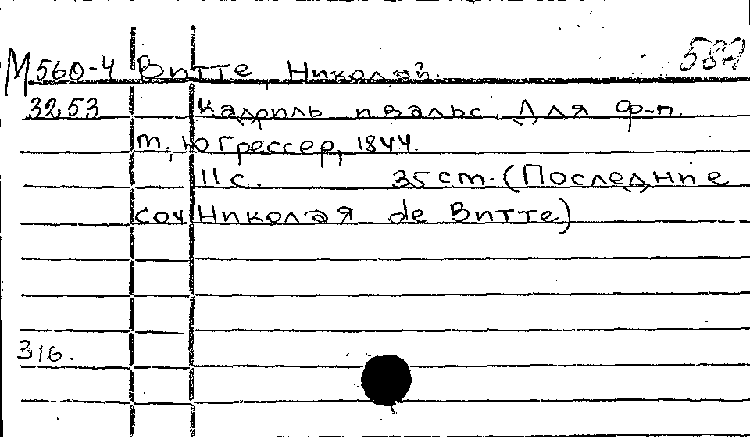 М 560-4 Витте, Николай.
3253 Кадриль и вальс. Для ф-п.
м, Ю Грессер, 1844.
11 с. 35 cm. (Последние
соч Николая de Витте)
316.